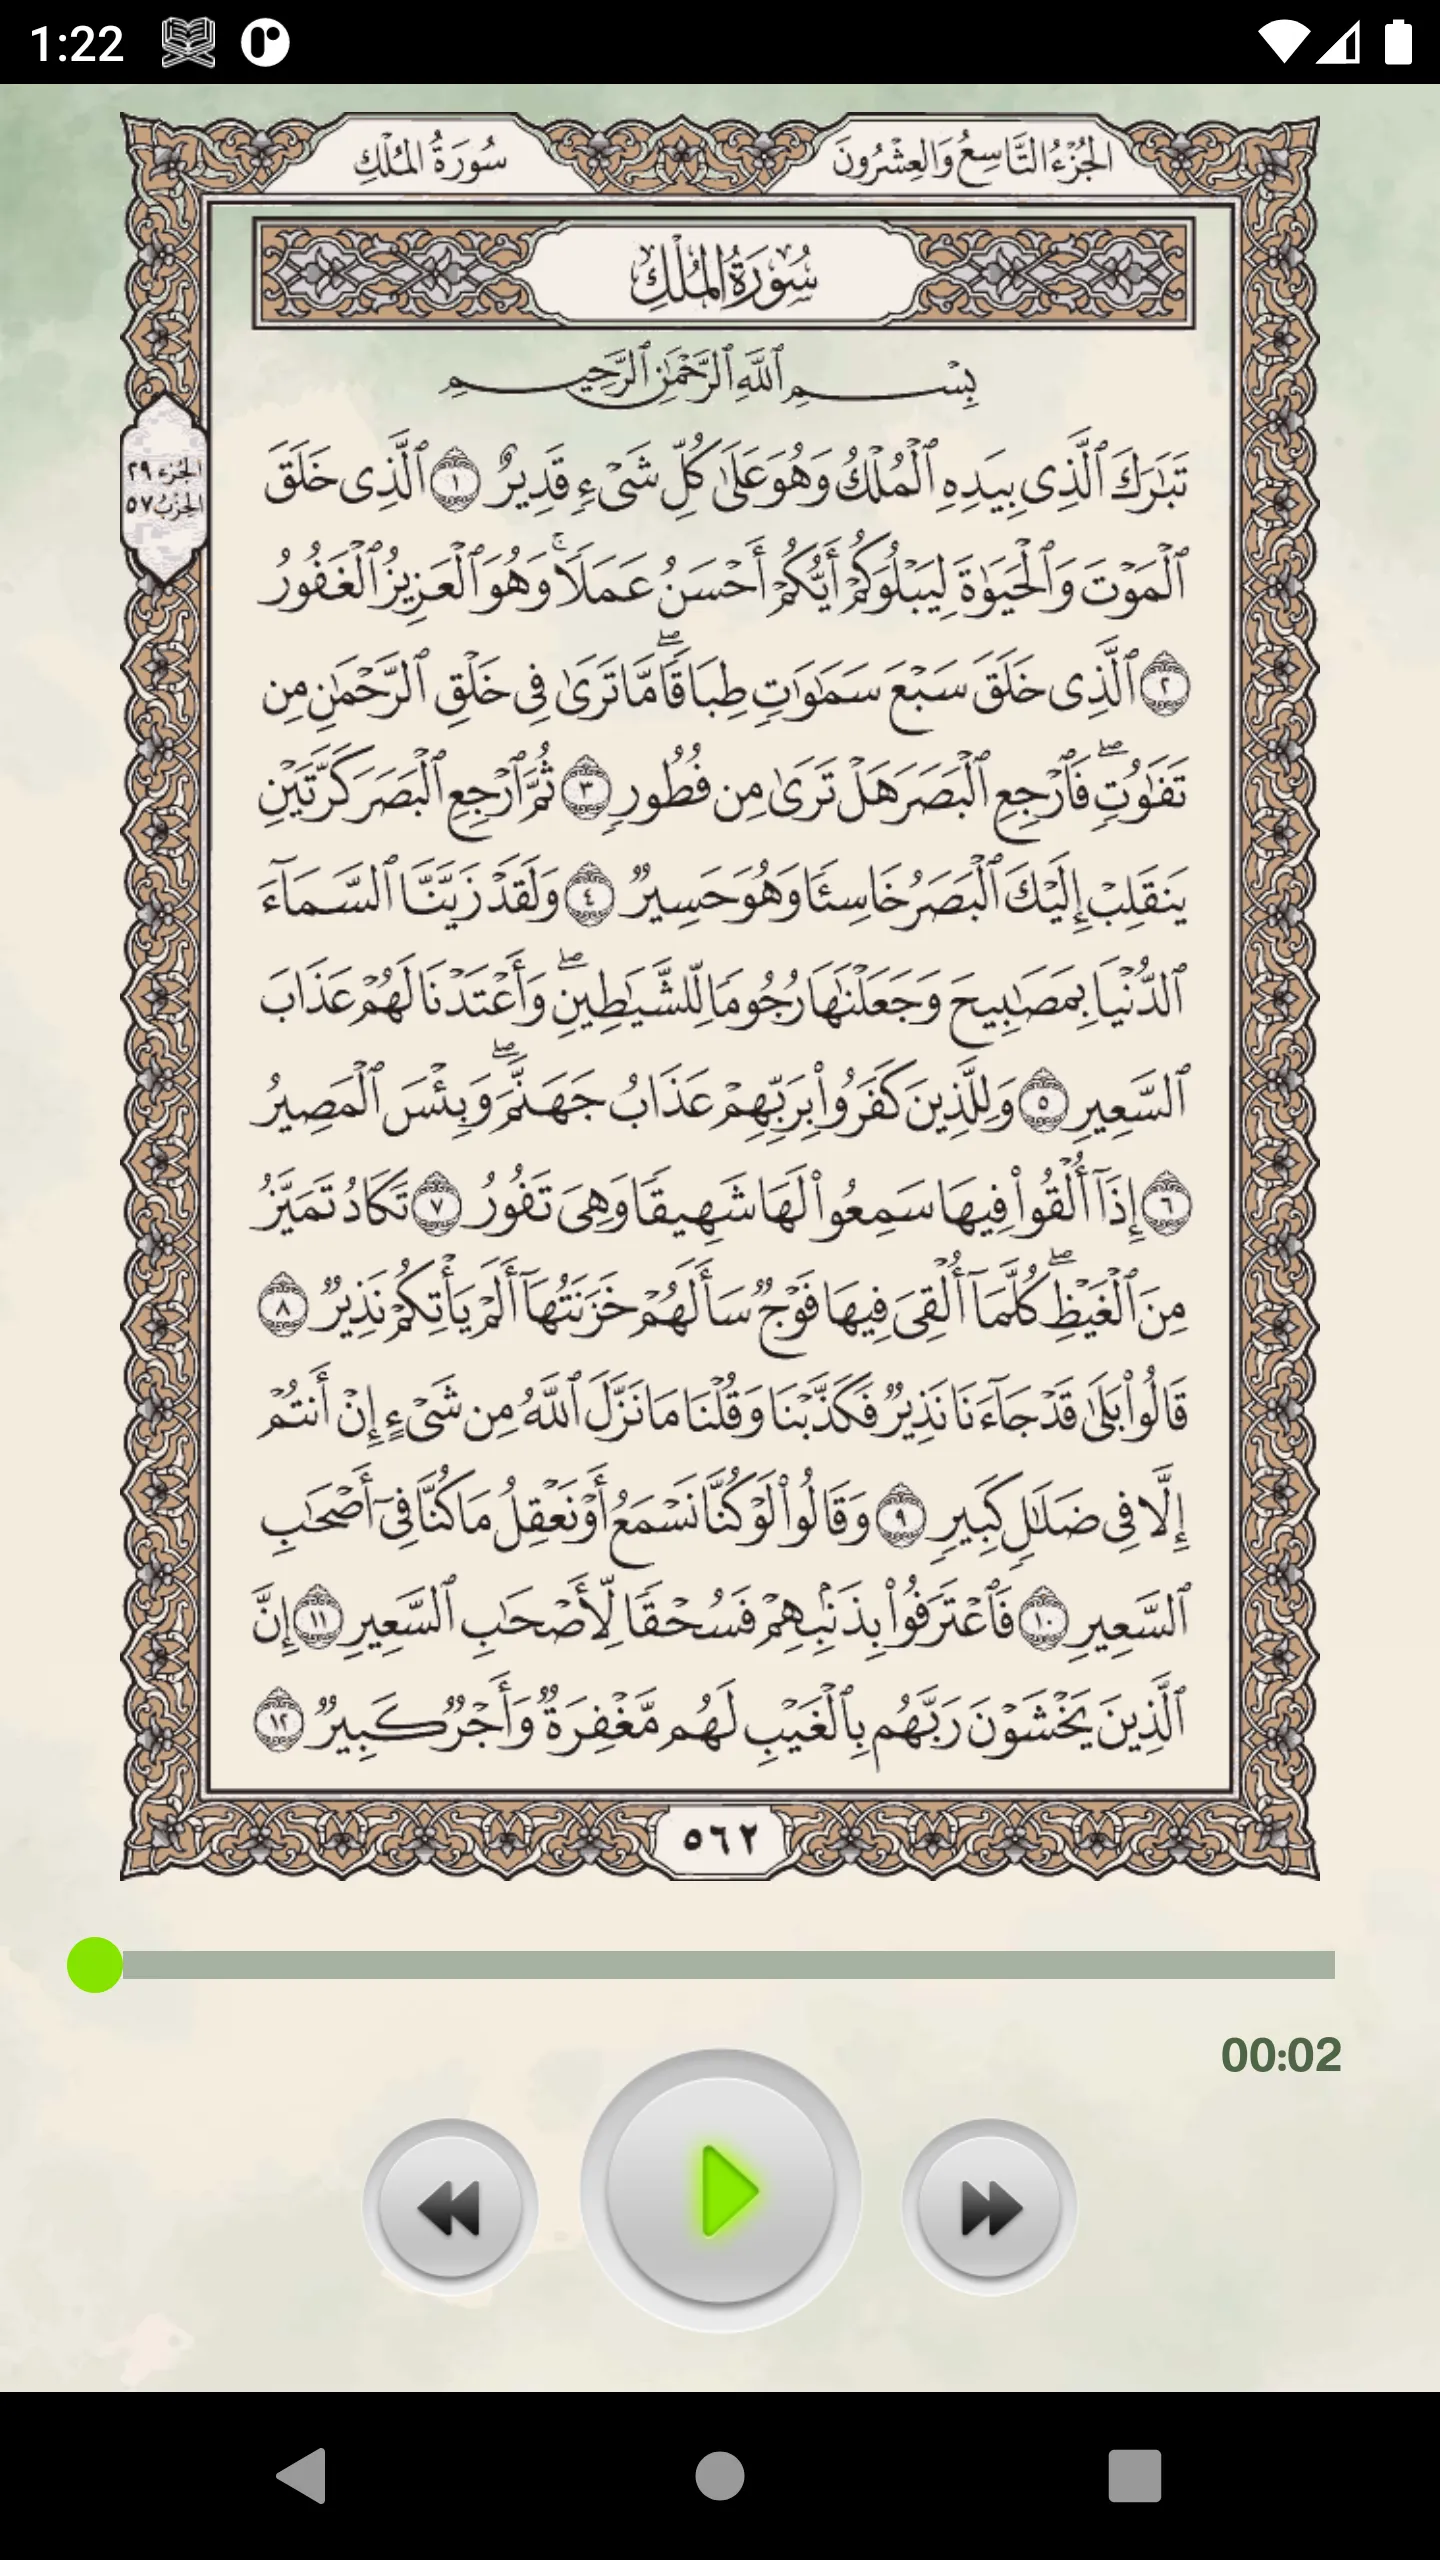 1:22
الجُزْءُ التَّاسِعُ وَالعِشْرُونَ
سُورَةُ المُلْكِ
سُورَةُ المُلْكِ
بِسْمِ ٱللَّهِ ٱلرَّحْمَٰنِ ٱلرَّحِيمِ
الجُزء ٢٩
الحِزْبُ ٥٧
تَبَٰرَكَ ٱلَّذِى بِيَدِهِ ٱلْمُلْكُ وَهُوَ عَلَىٰ كُلِّ شَىْءٍ قَدِيرٌ ١ ٱلَّذِى خَلَقَ
ٱلْمَوْتَ وَٱلْحَيَوٰةَ لِيَبْلُوَكُمْ أَيُّكُمْ أَحْسَنُ عَمَلًا ۚ وَهُوَ ٱلْعَزِيزُ ٱلْغَفُورُ
٢ ٱلَّذِى خَلَقَ سَبْعَ سَمَٰوَٰتٍ طِبَاقًا ۖ مَّا تَرَىٰ فِى خَلْقِ ٱلرَّحْمَٰنِ مِن
تَفَٰوُتٍ ۖ فَٱرْجِعِ ٱلْبَصَرَ هَلْ تَرَىٰ مِن فُطُورٍ ٣ ثُمَّ ٱرْجِعِ ٱلْبَصَرَ كَرَّتَيْنِ
يَنقَلِبْ إِلَيْكَ ٱلْبَصَرُ خَاسِئًا وَهُوَ حَسِيرٌ ٤ وَلَقَدْ زَيَّنَّا ٱلسَّمَآءَ
ٱلدُّنْيَا بِمَصَٰبِيحَ وَجَعَلْنَٰهَا رُجُومًا لِّلشَّيَٰطِينِ ۖ وَأَعْتَدْنَا لَهُمْ عَذَابَ
ٱلسَّعِيرِ ٥ وَلِلَّذِينَ كَفَرُوا۟ بِرَبِّهِمْ عَذَابُ جَهَنَّمَ ۖ وَبِئْسَ ٱلْمَصِيرُ
٦ إِذَآ أُلْقُوا۟ فِيهَا سَمِعُوا۟ لَهَا شَهِيقًا وَهِىَ تَفُورُ ٧ تَكَادُ تَمَيَّزُ
مِنَ ٱلْغَيْظِ ۖ كُلَّمَآ أُلْقِىَ فِيهَا فَوْجٌ سَأَلَهُمْ خَزَنَتُهَآ أَلَمْ يَأْتِكُمْ نَذِيرٌ ٨
قَالُوا۟ بَلَىٰ قَدْ جَآءَنَا نَذِيرٌ فَكَذَّبْنَا وَقُلْنَا مَا نَزَّلَ ٱللَّهُ مِن شَىْءٍ إِنْ أَنتُمْ
إِلَّا فِى ضَلَٰلٍ كَبِيرٍ ٩ وَقَالُوا۟ لَوْ كُنَّا نَسْمَعُ أَوْ نَعْقِلُ مَا كُنَّا فِىٓ أَصْحَٰبِ
ٱلسَّعِيرِ ١٠ فَٱعْتَرَفُوا۟ بِذَنۢبِهِمْ فَسُحْقًا لِّأَصْحَٰبِ ٱلسَّعِيرِ ١١ إِنَّ
ٱلَّذِينَ يَخْشَوْنَ رَبَّهُم بِٱلْغَيْبِ لَهُم مَّغْفِرَةٌ وَأَجْرٌ كَبِيرٌ ١٢
٥٦٢
00:02